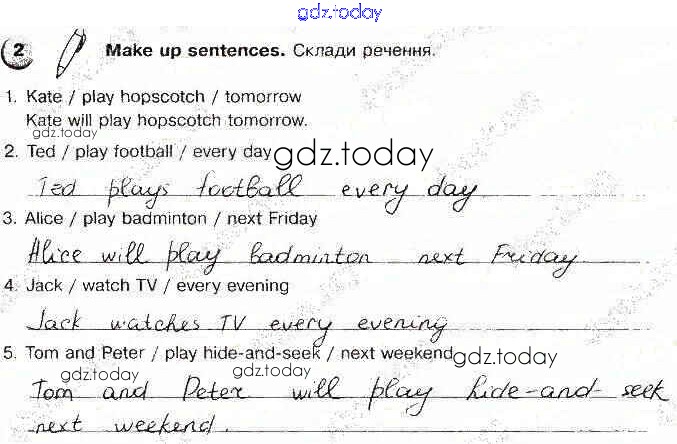 gdz.today
2 Make up sentences. Склади речення.
1. Kate / play hopscotch / tomorrow
Kate will play hopscotch tomorrow.
gdz.today
2. Ted / play football / every day
gdz.today
Ted plays football every day.
3. Alice / play badminton / next Friday
Alice will play badminton next Friday.
4. Jack / watch TV / every evening
Jack watches TV every evening.
5. Tom and Peter / play hide-and-seek / next weekend
gdz.today
gdz.today
gdz.today
Tom and Peter will play hide-and-seek
next weekend.